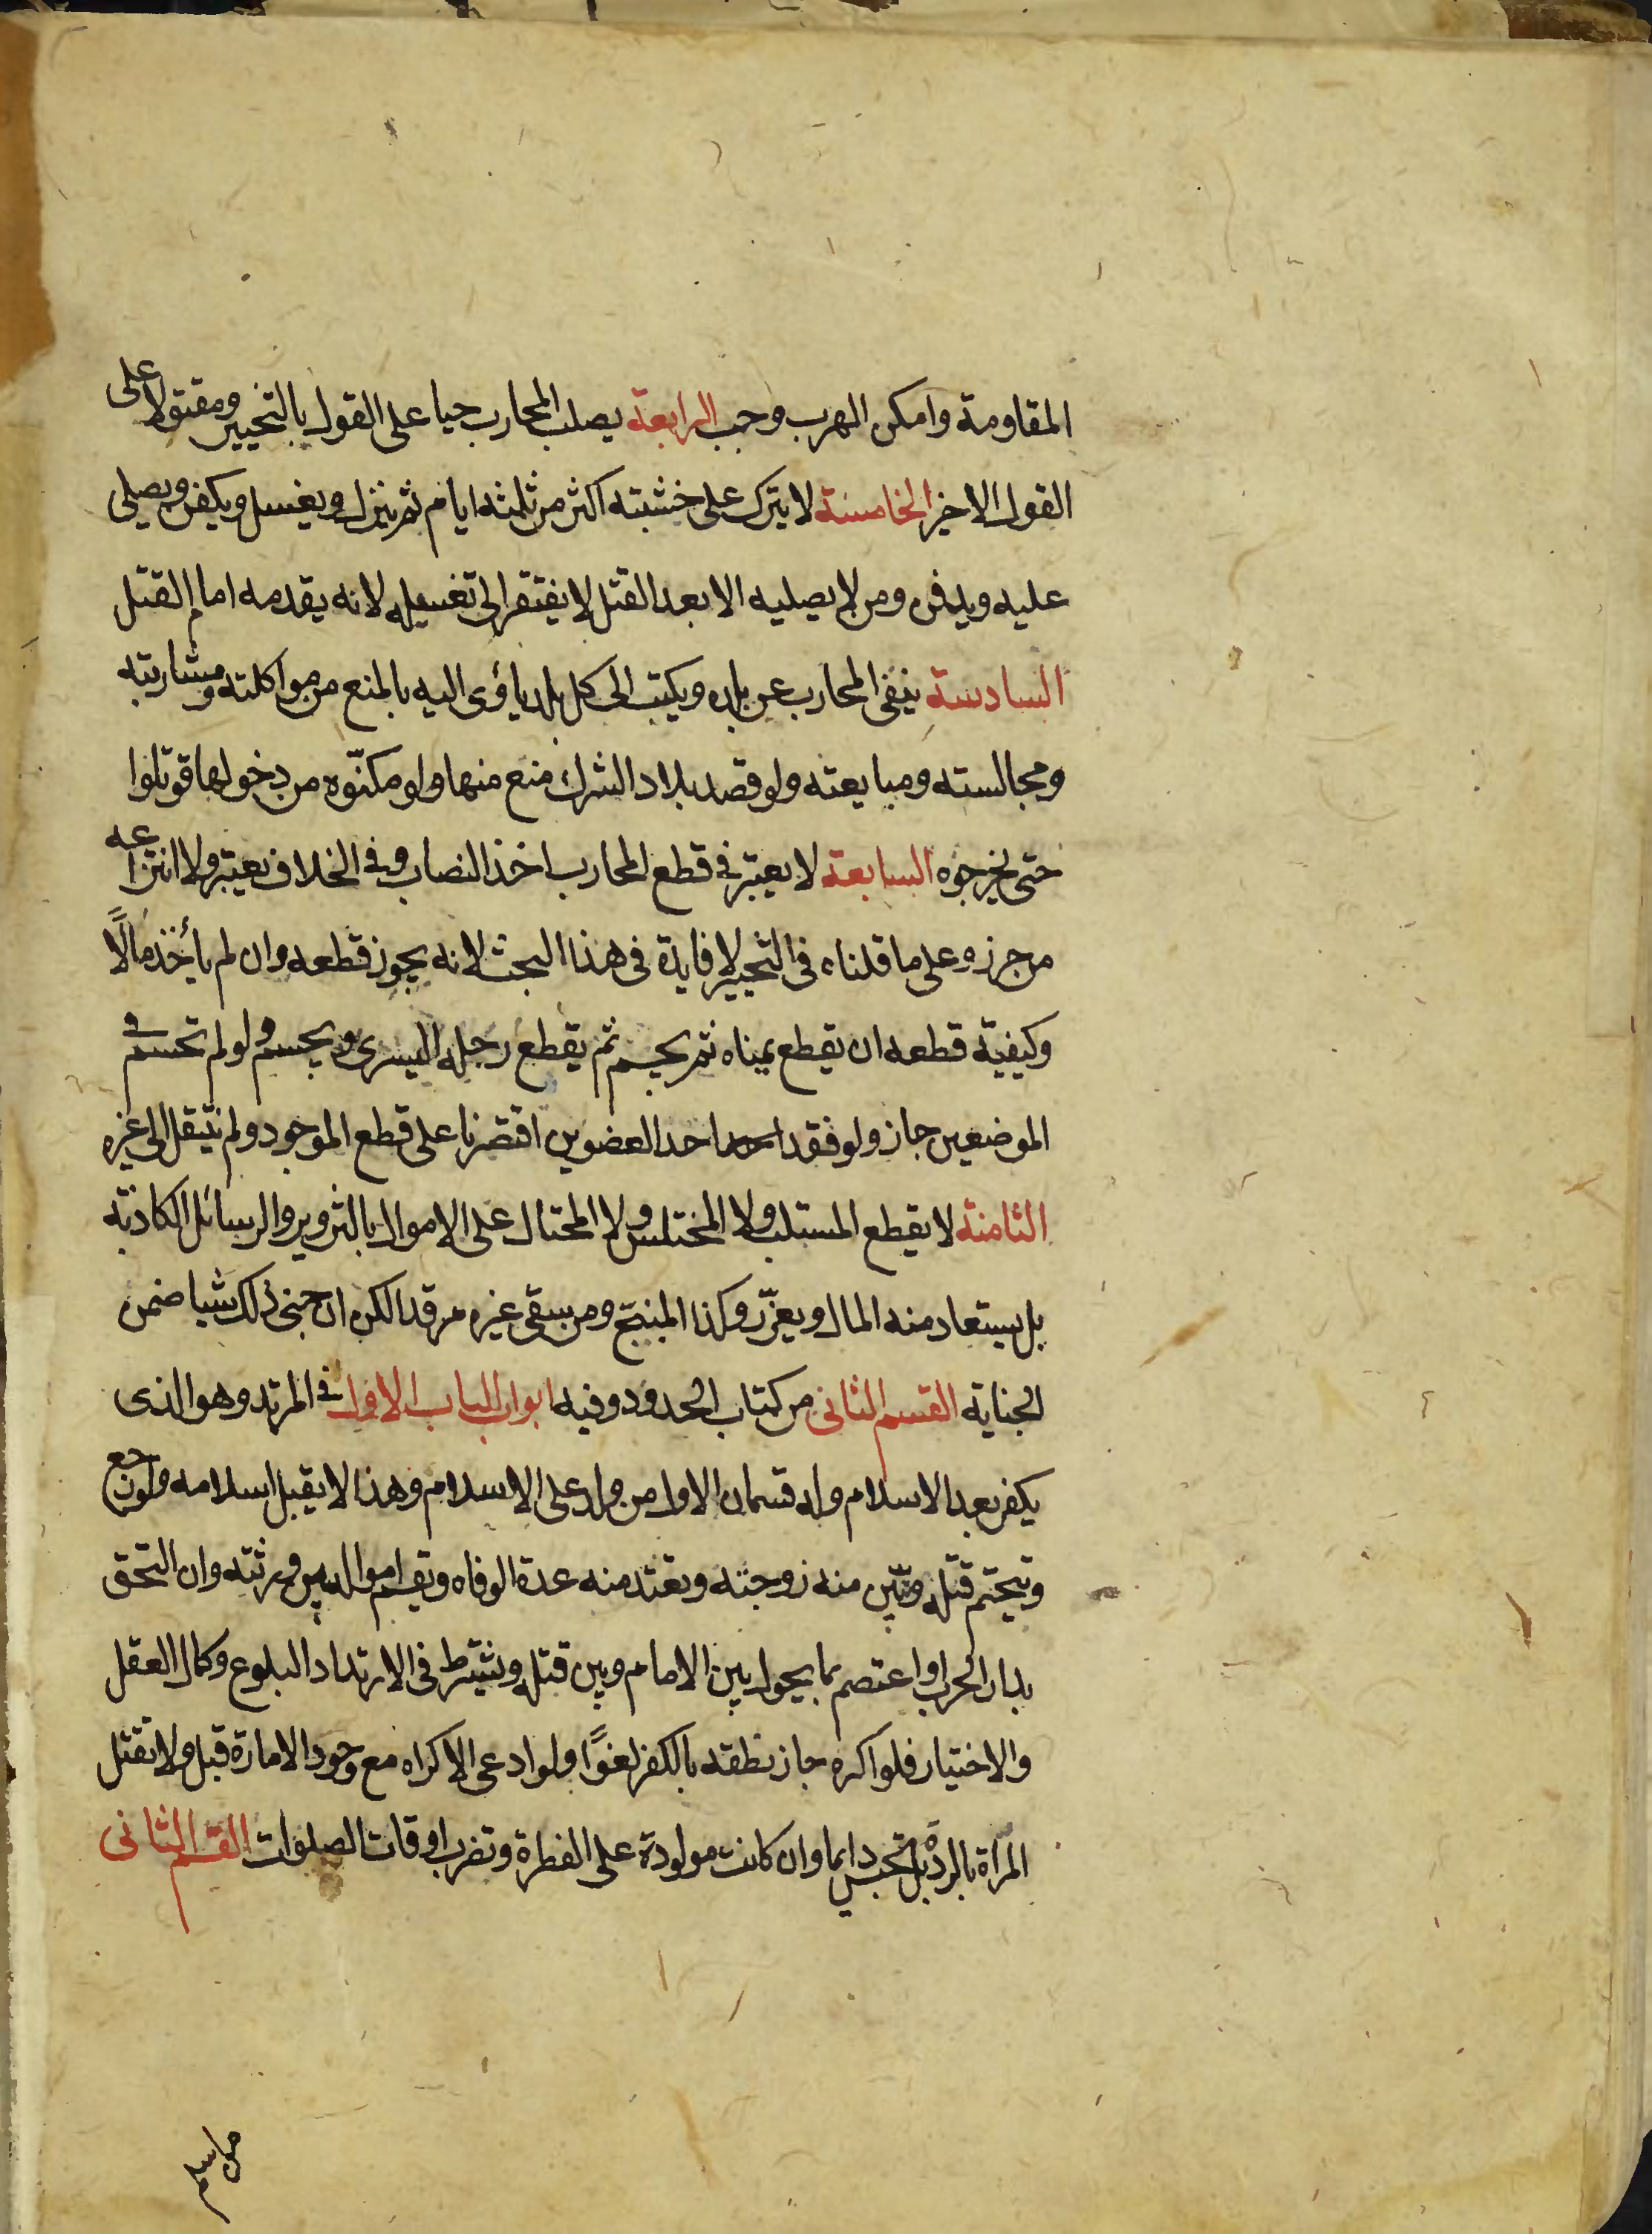 المقاومة وامكن الهرب وجب الرابعة يصلب المحارب حيا على القول بالتخيير ومقتولا على
القول الاخير الخامسة لا يترك على خشبته اكثر من ثلثه ايام ثم ينزل ويغسل ويكفن ويصلى
عليه ويدفن ومن لا يصليه الا بعد القتل لا يفتقر الى تغسيله لانه يقدمه امام القتل
السادسة ينفى المحارب عن بلده ويكتب الى كل بلد يأوى اليه بالمنع من مواكلته ومشاربته
ومجالسته ومبايعته ولو قصد بلاد الشرك منع منها ولو مكنّوه من دخولها قوتلوا
حتى يخرجوه السابعة لا يعتبر فى قطع المحارب اخذ النصاب وفى الخلاف يعتبر ولا انتزاعه
من حرزه وعلى ما قلناه فى التخيير لا فايدة فى هذا البحث لانه يجوز قطعه وان لم يأخذ مالًا
وكيفية قطعه ان يقطع يمناه ثم يحسم ثم يقطع رجله اليسرى ويحسم ولو لم تحسم فى
الموضعين جاز ولو فقد احد العضوين اقتصرنا على قطع الموجود ولم ننتقل الى غيره
الثامنة لا يقطع المستلب ولا المختلس ولا المحتال على الاموال بالتزوير والرسائل الكاذبة
بل يستعاد منه المال ويعزّر وكذا المبنج ومن سقى غيره مرقدا لكن ان جنى ذلك شيا ضمن
الجناية القسم الثانى من كتاب الحدود وفيه ابواب الباب الاول فى المرتد وهو الذى
يكفر بعد الاسلام وله قسمان الاول من ولد على الاسلام وهذا لا يقبل اسلامه ولو رجع
ويتحتم قتله وتبين منه زوجته وتعتد منه عدة الوفاه وتقسم امواله بين ورثته وان التحق
بدار الحرب او اعتصم بما يحول بين الامام وبين قتله ويشترط فى الارتداد البلوغ وكمال العقل
والاختيار فلو اكره جاز نطقه بالكفر لغوًا ولو ادعى الاكراه مع وجود الامارة قبل ولا تقتل
المرأة بالردة بل تحبس دايما وان كانت مولودة على الفطرة وتضرب اوقات الصلوات القسم الثانى